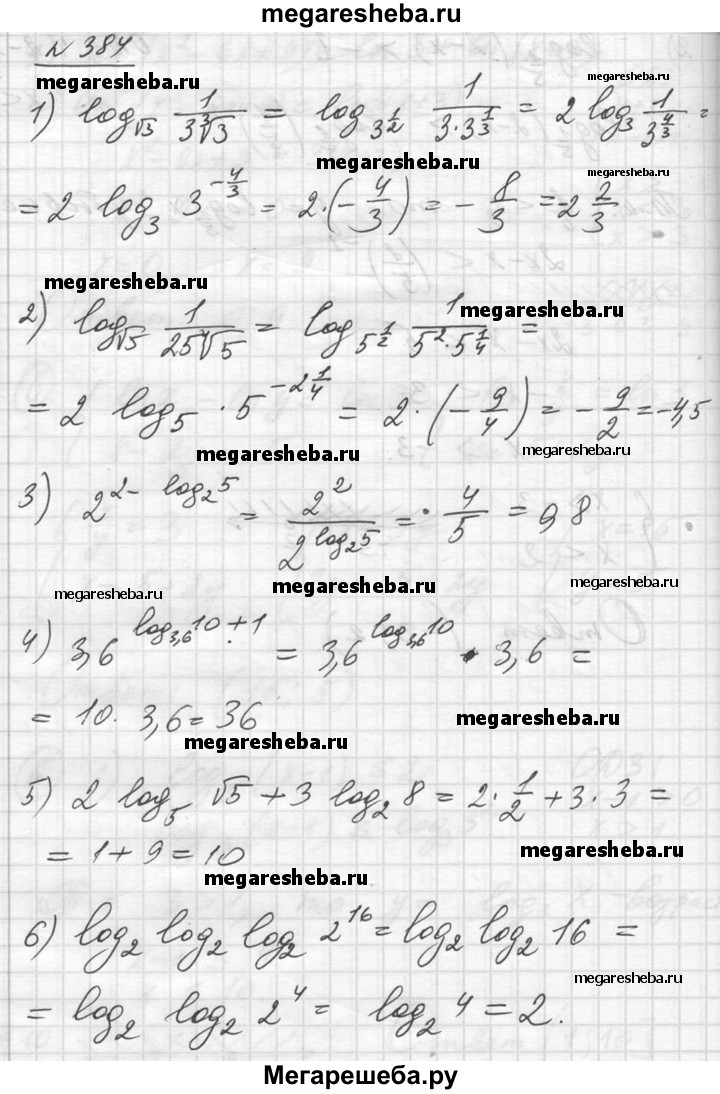 megaresheba.ru
№ 384
megaresheba.ru megaresheba.ru
1) log_√3 1/(3∛3) = log_3^(1/2) 1/(3·3^(1/3)) = 2 log_3 1/3^(4/3) =
megaresheba.ru megaresheba.ru
= 2 log_3 3^(-4/3) = 2·(-4/3) = -8/3 = -2 2/3
megaresheba.ru megaresheba.ru
2) log_√5 1/(25∜5) = log_5^(1/2) 1/(5^2·5^(1/4)) =
= 2 log_5 · 5^(-2 1/4) = 2·(-9/4) = -9/2 = -4,5
megaresheba.ru megaresheba.ru
3) 2^(2-log_2 5) = 2^2/2^(log_2 5) = 4/5 = 0,8
megaresheba.ru megaresheba.ru megaresheba.ru
4) 3,6^(log_3,6 10+1) = 3,6^(log_3,6 10) · 3,6 =
= 10 · 3,6 = 36
megaresheba.ru megaresheba.ru
5) 2 log_5 √5 + 3 log_2 8 = 2·1/2 + 3·3 =
= 1 + 9 = 10
megaresheba.ru megaresheba.ru
6) log_2 log_2 log_2 2^16 = log_2 log_2 16 =
megaresheba.ru
= log_2 log_2 2^4 = log_2 4 = 2.
Мегарешеба.ру